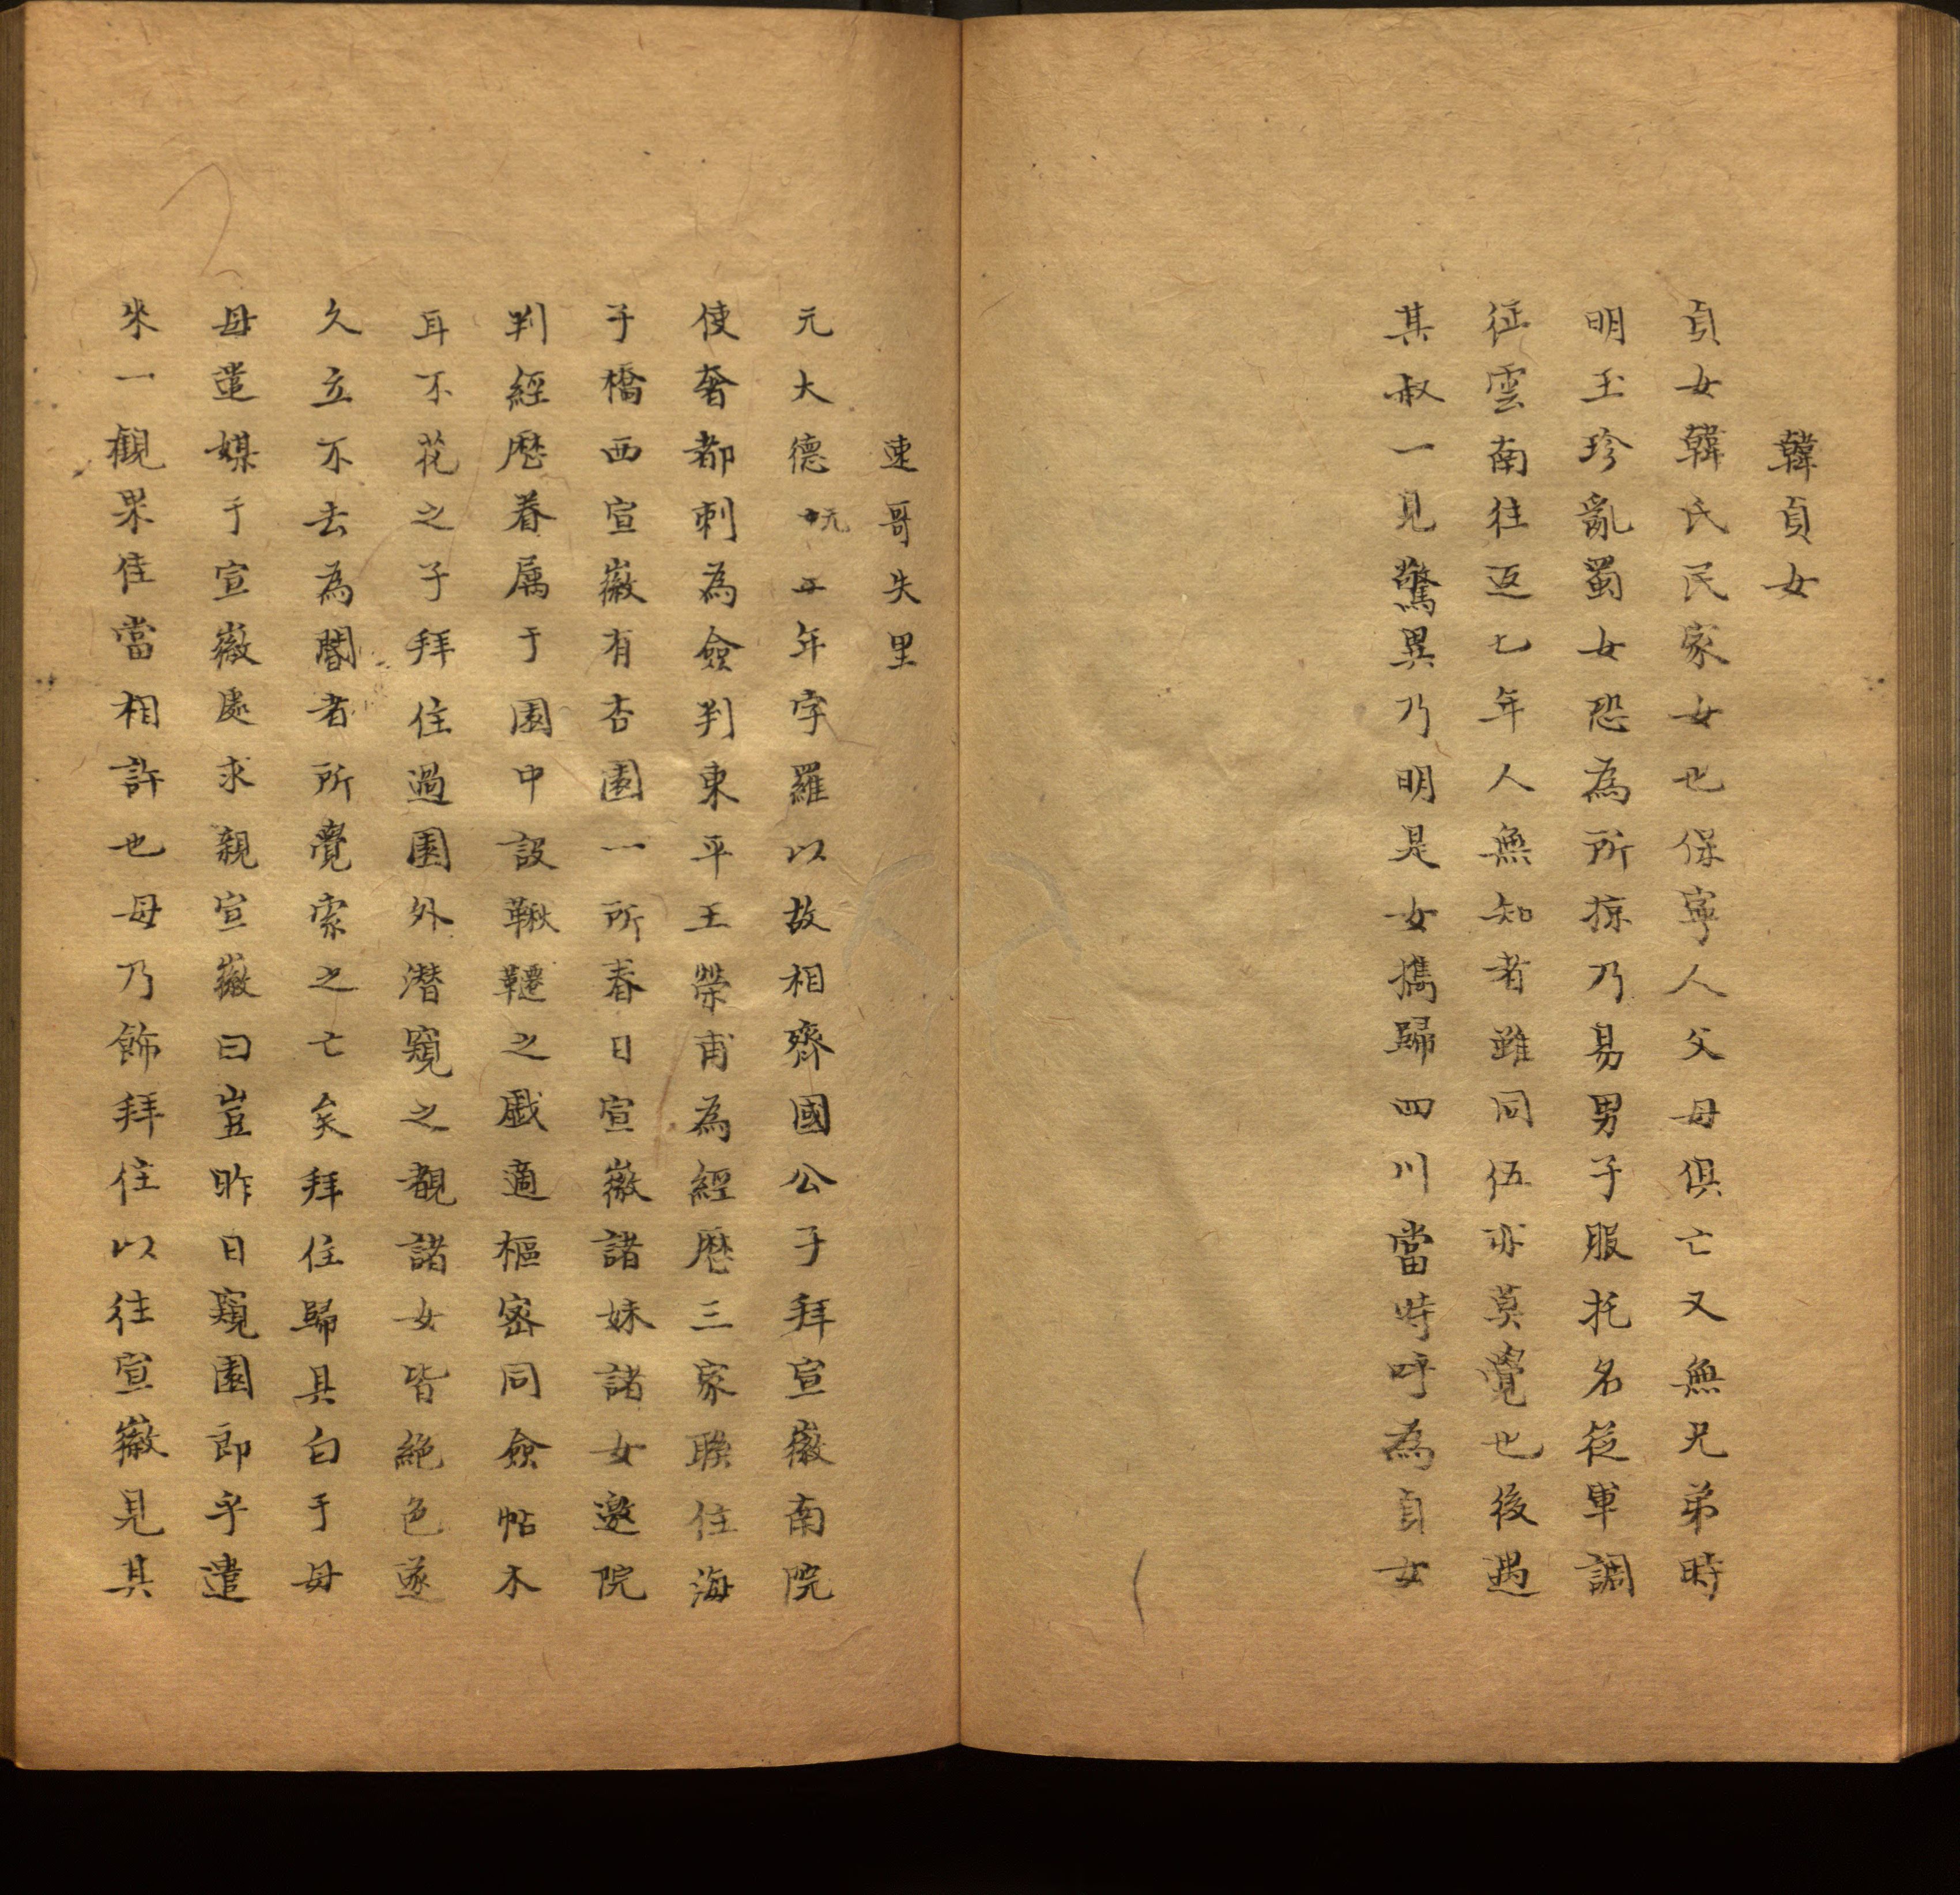 韓貞女
貞女韓氏民家女也保寧人父母俱亡又無兄弟時
明玉珍亂蜀女恐為所掠乃易男子服托名從軍調
征雲南往返七年人無知者雖同伍亦莫覺也後遇
其叔一見驚異乃明是女携歸四川當時呼為貞女
速哥失里
元大德年字羅以故相齊國公子拜宣徽南院
使奢都刺為僉判東平王榮甫為經歷三家聯住海
子橋西宣徽有杏園一所春日宣徽諸妹諸女邀院
判經歷眷属于園中設鞦韆之戲適樞密同僉帖木
耳不花之子拜住過園外潜窺之覩諸女皆絶色遂
久立不去為閽者所覺索之亡矣拜住歸具白于母
母遣媒于宣徽處求親宣徽曰豈昨日窺園郎乎遣
來一觀果佳當相許也母乃飾拜住以往宣徽見其